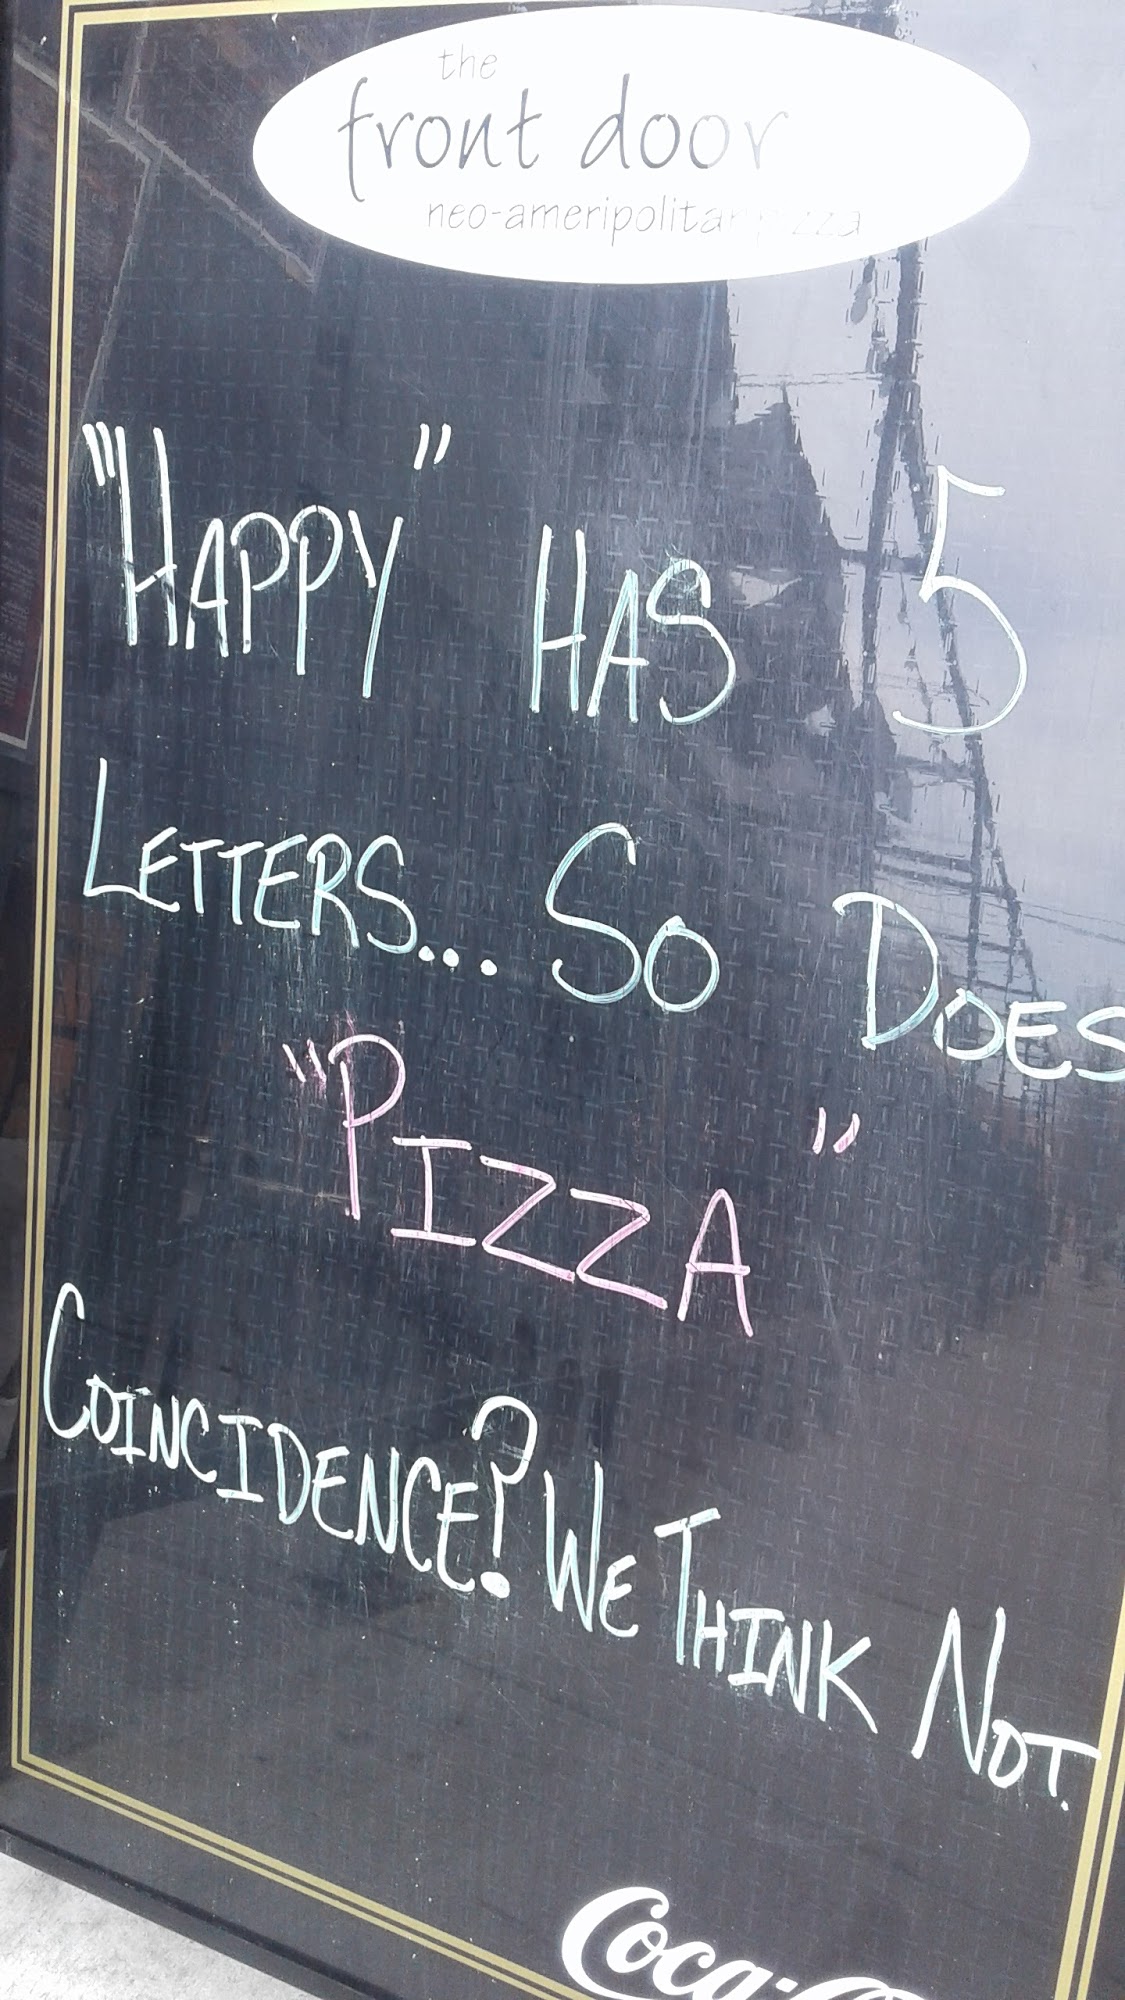 the
front door
neo-ameripolitan pizza
"HAPPY" HAS 5
LETTERS... SO DOES
"PIZZA"
COINCIDENCE? WE THINK NOT.
Coca-